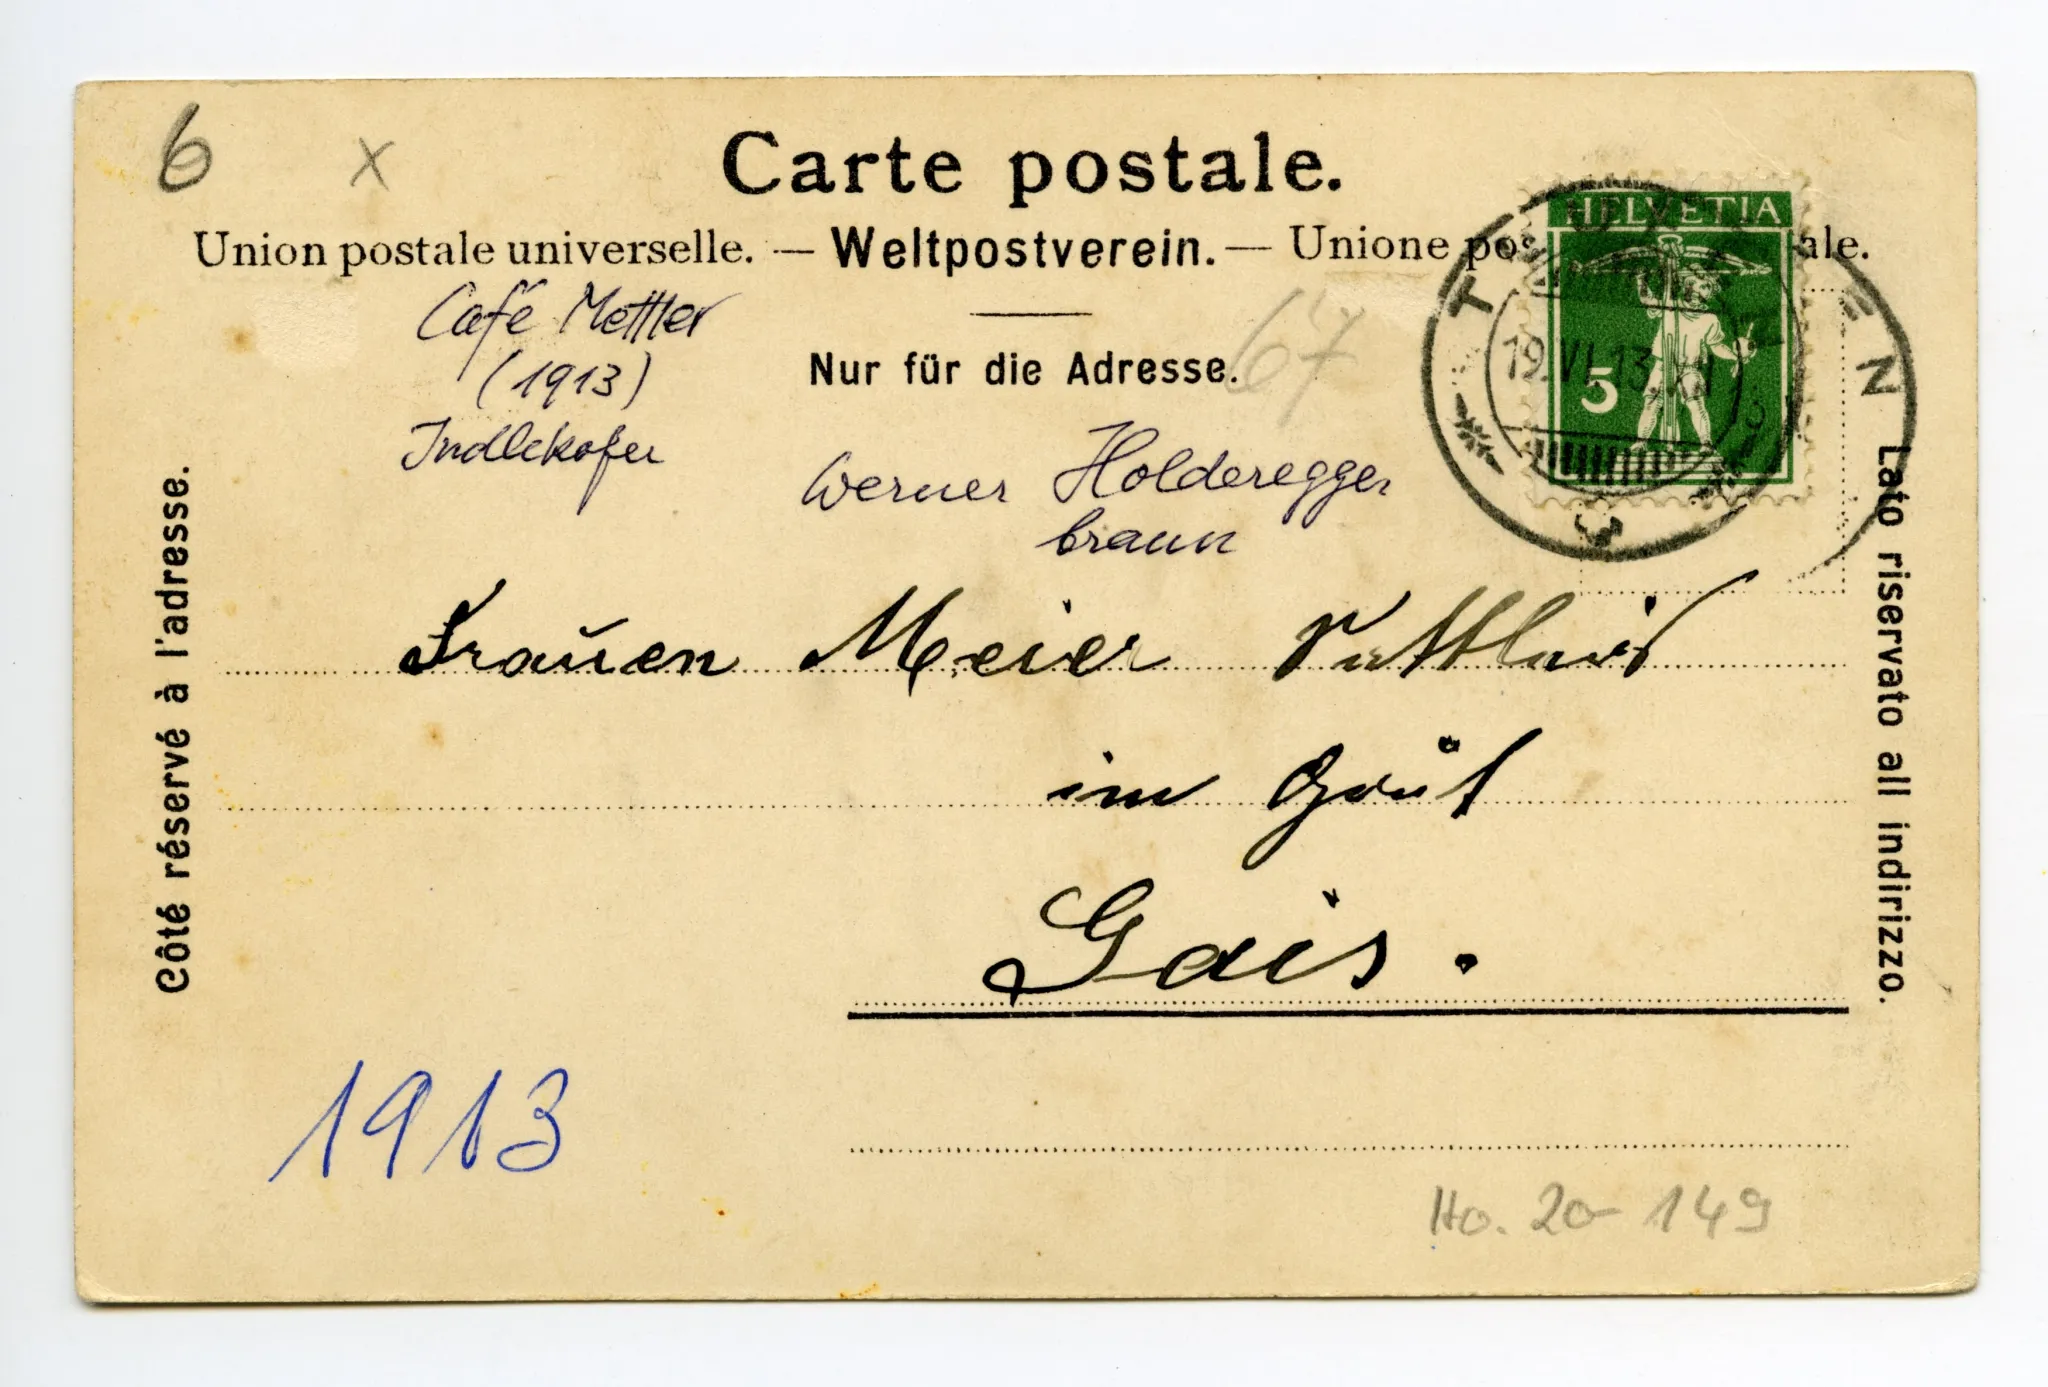 6 x
Carte postale.
Union postale universelle. — Weltpostverein. — Unione pos ale.
Café Mettler
(1913)
Indlekofer
Nur für die Adresse.
67
Werner Holderegger
braun
HELVETIA
5
T N
19.VI.13.XI
Côté réservé à l'adresse.
Lato riservato all indirizzo.
Frauen Meier
im
Gais.
1913
Ho. 20-149